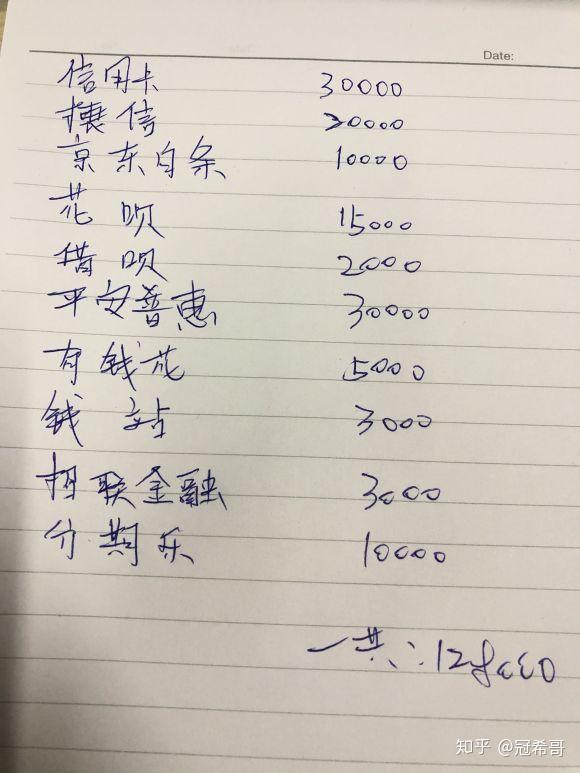 Date:
信用卡 30000
攘信 20000
京东白条 10000
花呗 15000
借呗 2000
平安普惠 30000
有钱花 5000
钱站 3000
招联金融 3000
分期乐 10000
一共:128000
知乎 @冠希哥